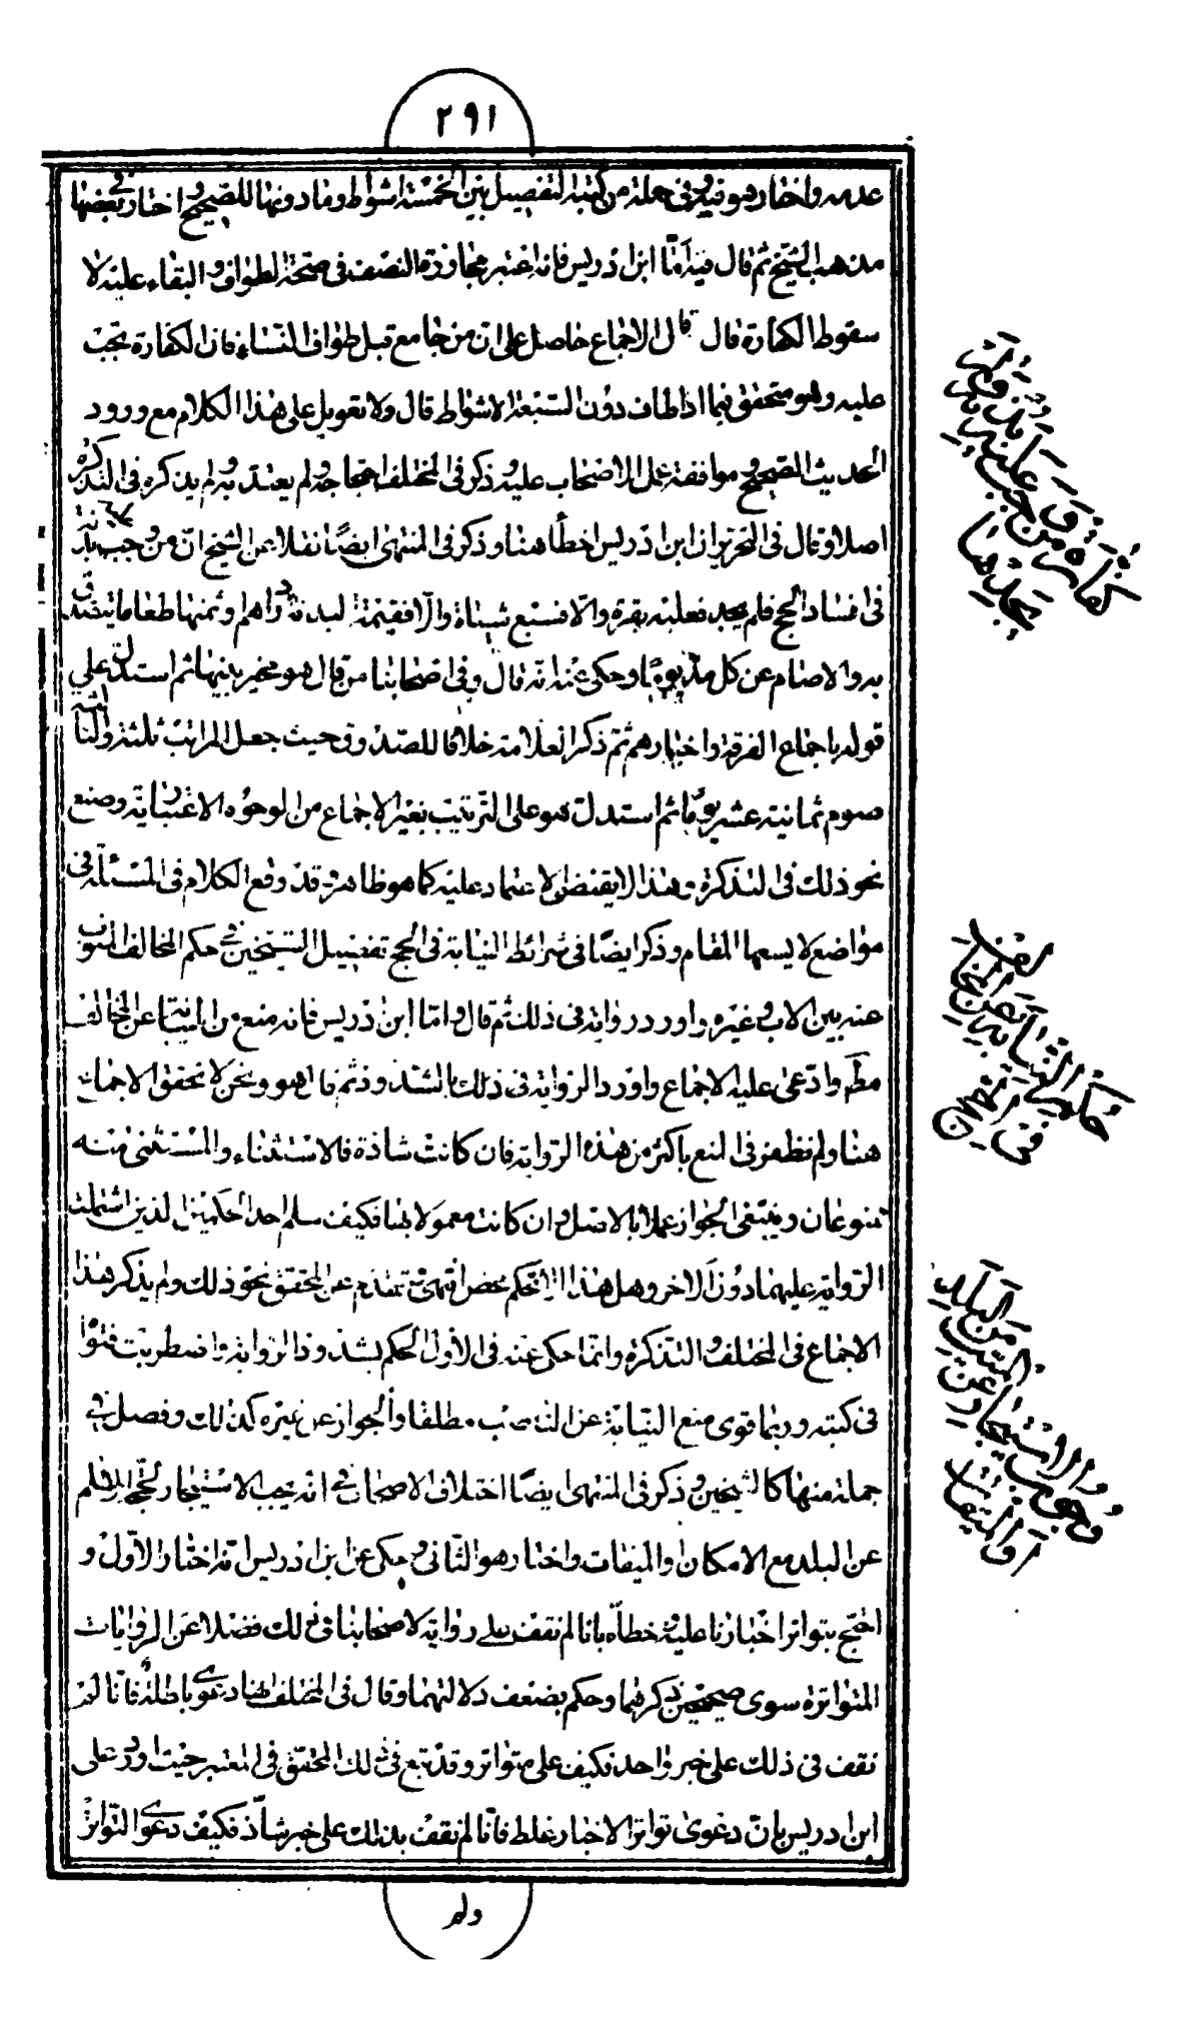 ٢٩١
عدمه واختار هو فيه وفى جملة من كتبه التفصيل بين الخمسة اشواط وما دونها للصحيح واختار فى بعضها
مذهب الشيخ ثم قال فيه امّا ابن ادريس فانه اعتبر مجاوزة النصف فى صحّة الطواف والبقاء عليه لا
سقوط الكفارة قال لان الاجماع حاصل على ان من جامع قبل طواف النّساء فان الكفارة تجب
عليه وهو متحقق فيما اذا طاف دون السّبعة الاشواط قال ولا تعويل على هذا الكلام مع ورود
الحديث الصحيح وموافقة عمل الاصحاب عليه وذكر فى المختلف احتجاجه ولم يعتد به ولم يذكره فى التذكرة
اصلا وقال فى التحرير ان ابن ادريس اخطأ هنا وذكر فى المنتهى ايضًا نقلا عن الشيخ ان من وجب بدنة
فى افساد الحج فلم يجد فعليه بقرة والّا فسبع شياة والّا فقيمة البدنة دراهم وثمنها طعاما يتصدّق
به والا صام عن كل مدّ يومًا وحكى عنه انه قال وفى اصحابنا من قال هو مخير بينها ثم استدل على
قوله باجماع الفرقة واخبارهم ثم ذكر العلامة خلافا للصّدوق حيث جعل المراتب ثلثة والثالثة
صوم ثمانية عشر يومًا ثم استدلّ هو على التّرتيب بغير الاجماع من الوجوه الاعتبارية وصنع
نحو ذلك فى التذكرة وهذا لا يقتضى الاعتماد عليه كما هو ظاهر وقد وقع الكلام فى المسئلة فى
مواضع لا يسعها المقام وذكر ايضًا فى شرائط النيابة فى الحج تفصيل الشيخين فى حكم المخالف المنوب
عنه بين الاب وغيره واورد رواية فى ذلك ثم قال وامّا ابن ادريس فانه منع من النيابة عن المخالف
مطّ وادّعى عليه الاجماع واورد الرواية فى ذلك بالشذوذ ثم قال هو ونحن لا نحقق الاجماع
هنا ولم نظفر فى المنع باكثر من هذه الرواية فان كانت شاذة فالاستثناء والمستثنى منه
ممنوعان ويبقى الجواز عملا بالاصل وان كانت معمولا بها فكيف سلم احد الحكمين الذين اشتملت
الرواية عليهما دون الاخر وهل هذا الا تحكم محض انتهى وقد تقدم عن المحقق نحو ذلك ولم يذكر هذا
الاجماع فى المختلف والتذكرة وانما حكى عنه فى الاول الحكم بشذوذ الرواية واضطربت فتواه
فى كتبه وربما قوى منع النيابة عن الناصب مطلقا والجواز عن غيره كذلك وفصل فى
جملة منها كالشيخين وذكر فى المنتهى ايضًا اختلاف الاصحاب فى انه يجب الاستيجار لحجّة الاسلام
عن البلد مع الامكان والميقات واختار هو الثّانى وحكى عن ابن ادريس انه اختار الاول و
احتج بتواتر اخبارنا عليه وخطّاه بانا لم نقف على رواية لاصحابنا فى ذلك فضلا عن الروايات
المتواترة سوى صحيحين ذكرهما وحكم بضعف دلالتهما وقال فى المختلف هنا دعوى باطلة فانا لم
نقف فى ذلك على خبر واحد فكيف على متواتر وقد تبع فى ذلك المحقق فى المعتبر حيث اورد على
ابن ادريس بان دعوى تواتر الاخبار غلط فانّا لم نقف بذلك على خبر شاذّ فكيف دعوى التّواتر
ولم
كفارة من وجب عليه بدنة
حكم النيابة عن المخالف
وجوب الاستيجار من البلد
او الميقات